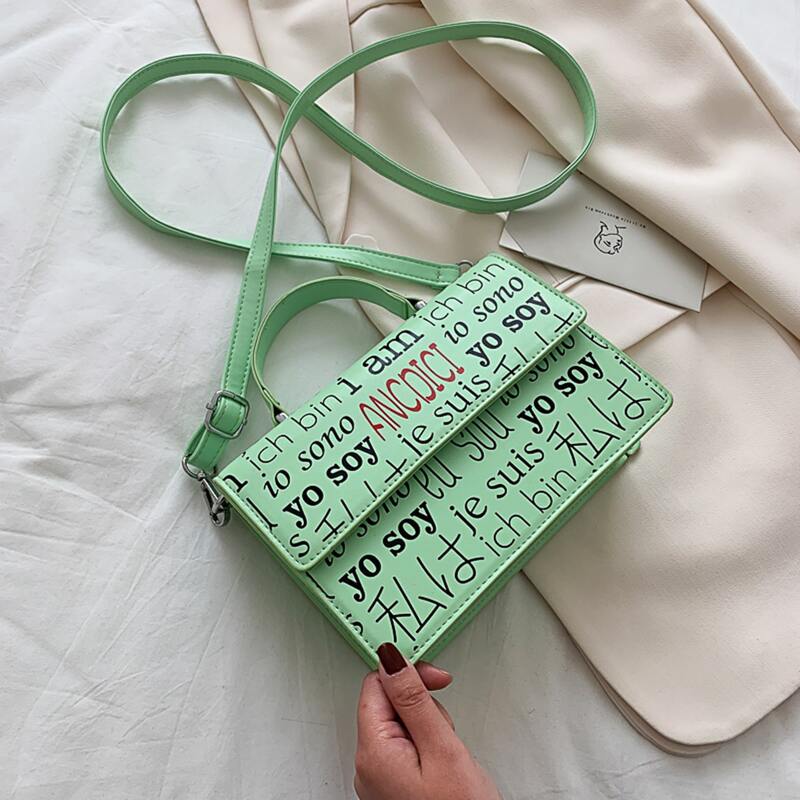 ich bin
i am
ich bin
io sono
ANCDICI
io sono
yo soy
je suis
yo soy
私は
私は
io sono
eu sou
io sono
yo soy
je suis
yo soy
私は
ich bin
私は